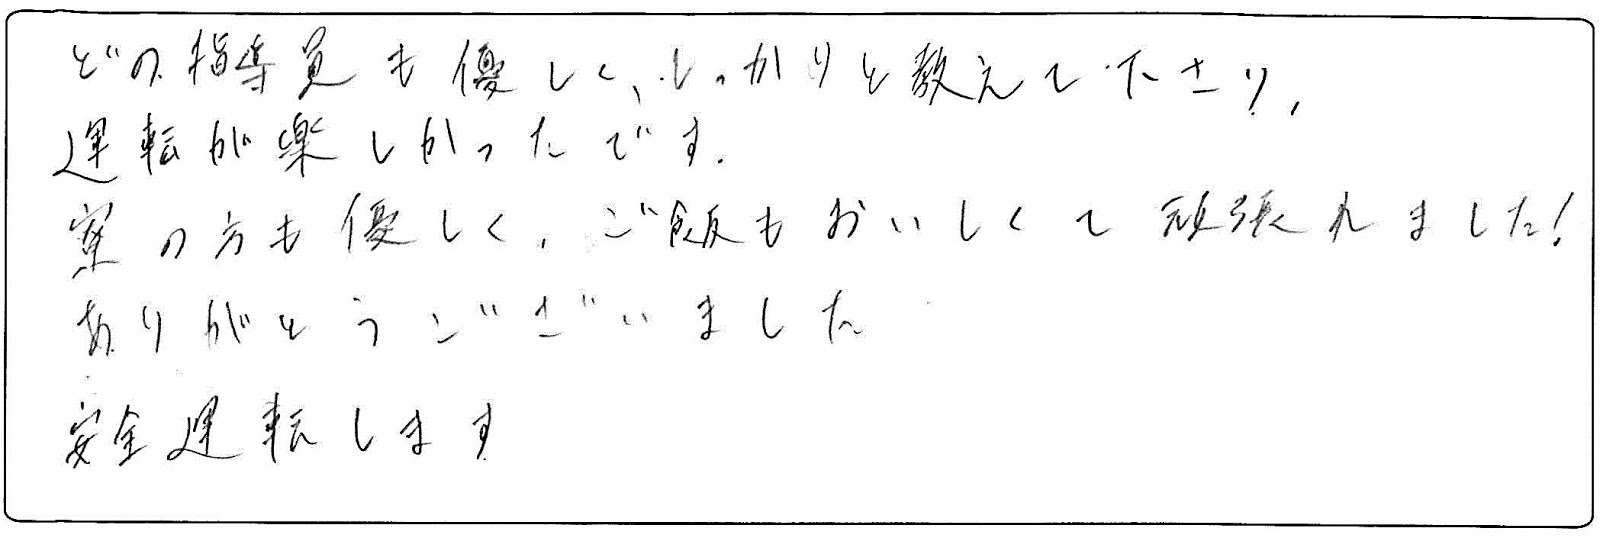 どの指導員も優しく、しっかりと教えて下さり、
運転が楽しかったです。
寮の方も優しく、ご飯もおいしくて頑張れました!
ありがとうございました
安全運転します